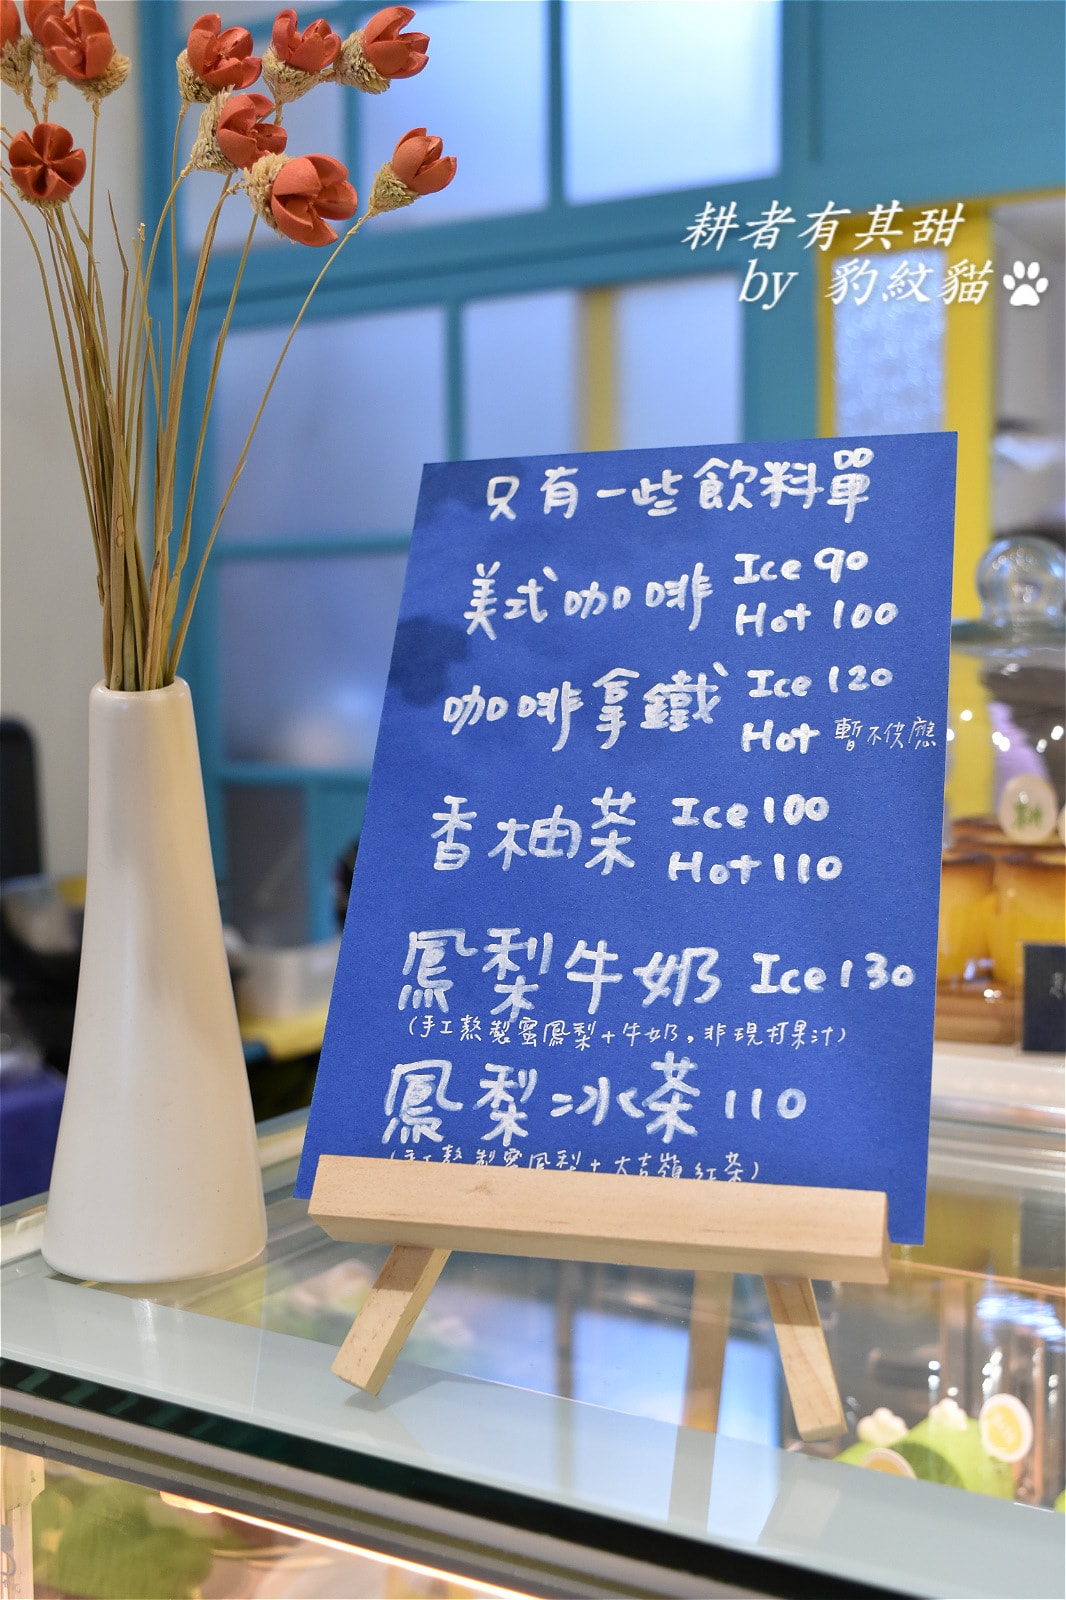 耕者有其甜
by 豹紋貓
只有一些飲料單
美式咖啡 Ice 90
Hot 100
咖啡拿鐵 Ice 120
Hot 暫不供應
香柚茶 Ice 100
Hot 110
鳳梨牛奶 Ice 130
(手工熬製蜜鳳梨+牛奶,非現打果汁)
鳳梨冰茶 110
(手工熬製蜜鳳梨+大吉嶺紅茶)